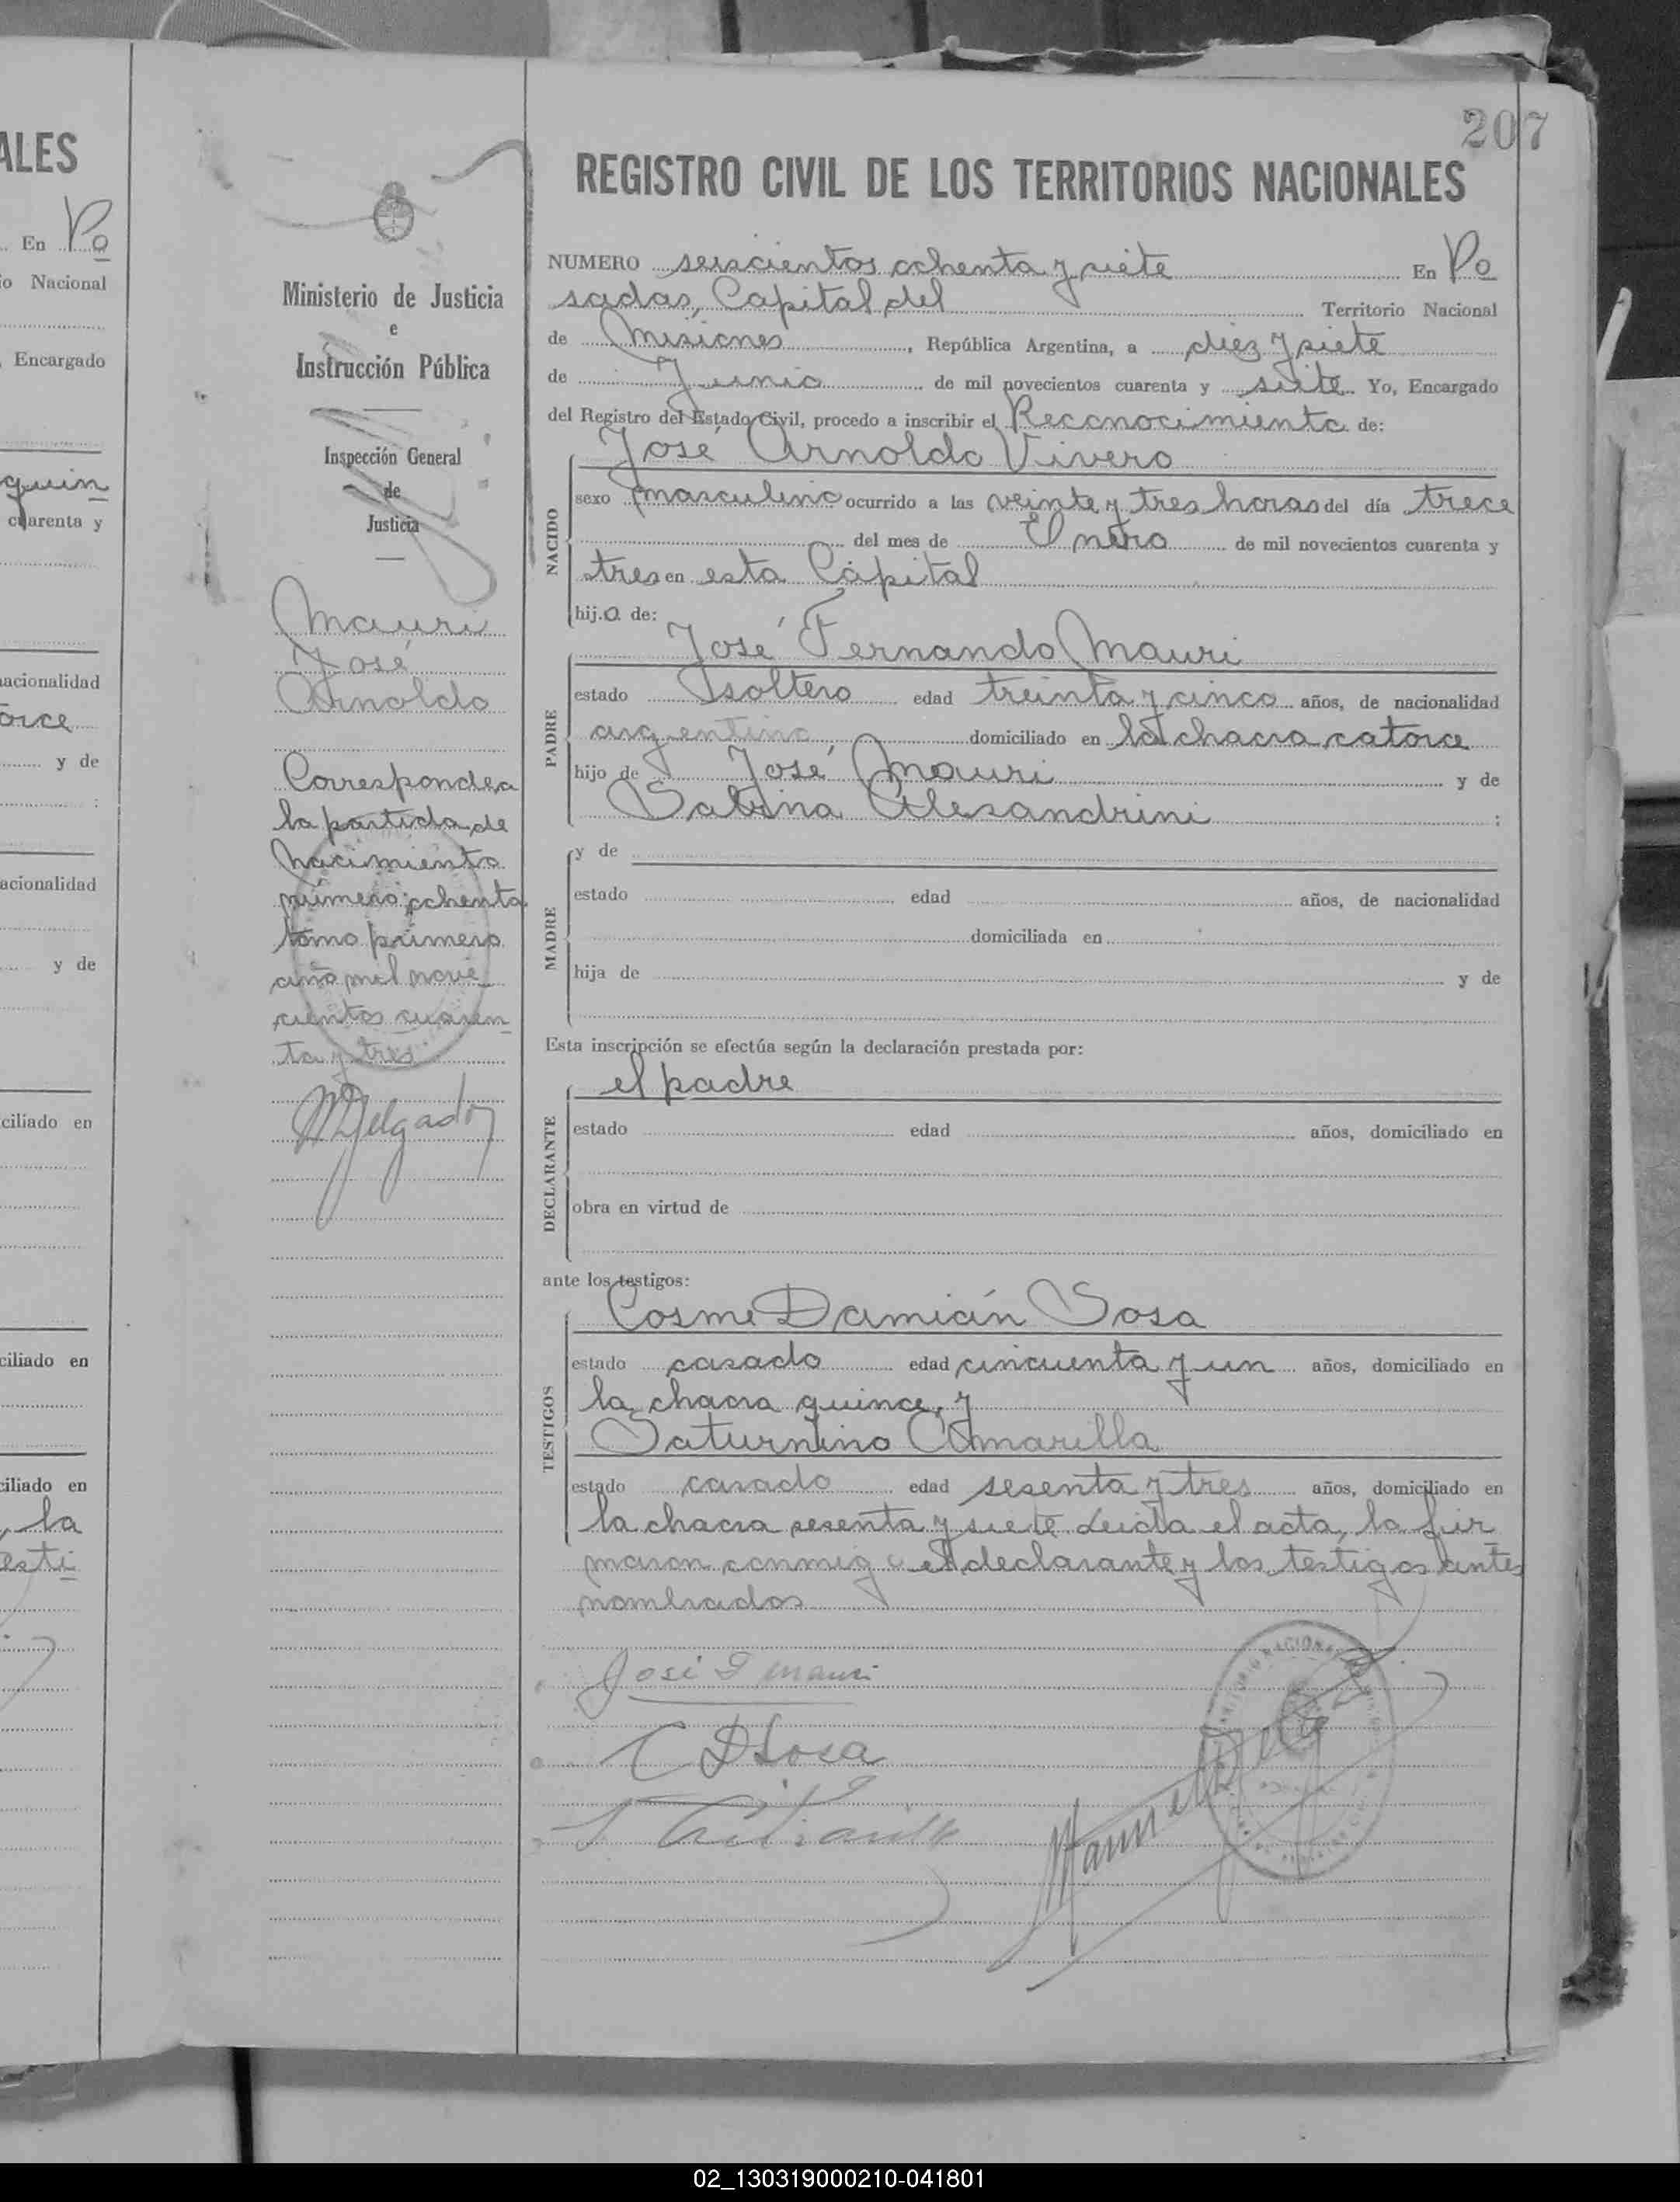 207
ALES
En Po
o Nacional
, Encargado
quin
cuarenta y
nacionalidad
orce
y de
nacionalidad
y de
ciliado en
ciliado en
ciliado en
, la
esti
Ministerio de Justicia
e
Instrucción Pública
Inspección General
de
Justicia
Mauri
José
Arnoldo
Corresponde a
la partida de
nacimiento
número ochenta
tomo primero
año mil nove
cientos cuaren
ta y tres
MDelgado
REGISTRO CIVIL DE LOS TERRITORIOS NACIONALES
NUMERO seiscientos ochenta y siete En Po
sadas, Capital del Territorio Nacional
de Misiones, República Argentina, a diez y siete
de Junio de mil novecientos cuarenta y siete. Yo, Encargado
del Registro del Estado Civil, procedo a inscribir el Reconocimiento de:
José Arnoldo Vivero
NACIDO
sexo masculino ocurrido a las veinte y tres horas del día trece
del mes de Enero de mil novecientos cuarenta y
tres en esta Capital
hijo de:
José Fernando Mauri
PADRE
estado soltero edad treinta y cinco años, de nacionalidad
argentina domiciliado en la chacra catorce
hijo de José Mauri y de
Sabina Alesandrini ;
MADRE
y de
estado edad años, de nacionalidad
domiciliada en
hija de y de
Esta inscripción se efectúa según la declaración prestada por:
el padre
DECLARANTE
estado edad años, domiciliado en
obra en virtud de
ante los testigos:
Cosme Damián Sosa
TESTIGOS
estado casado edad cincuenta y un años, domiciliado en
la chacra quince, y
Saturnino Amarilla
estado casado edad sesenta y tres años, domiciliado en
la chacra sesenta y siete Leida el acta, la fir
maron conmigo el declarante y los testigos antes
nombrados
José F Mauri
C D Sosa
Manuel
02_130319000210-041801